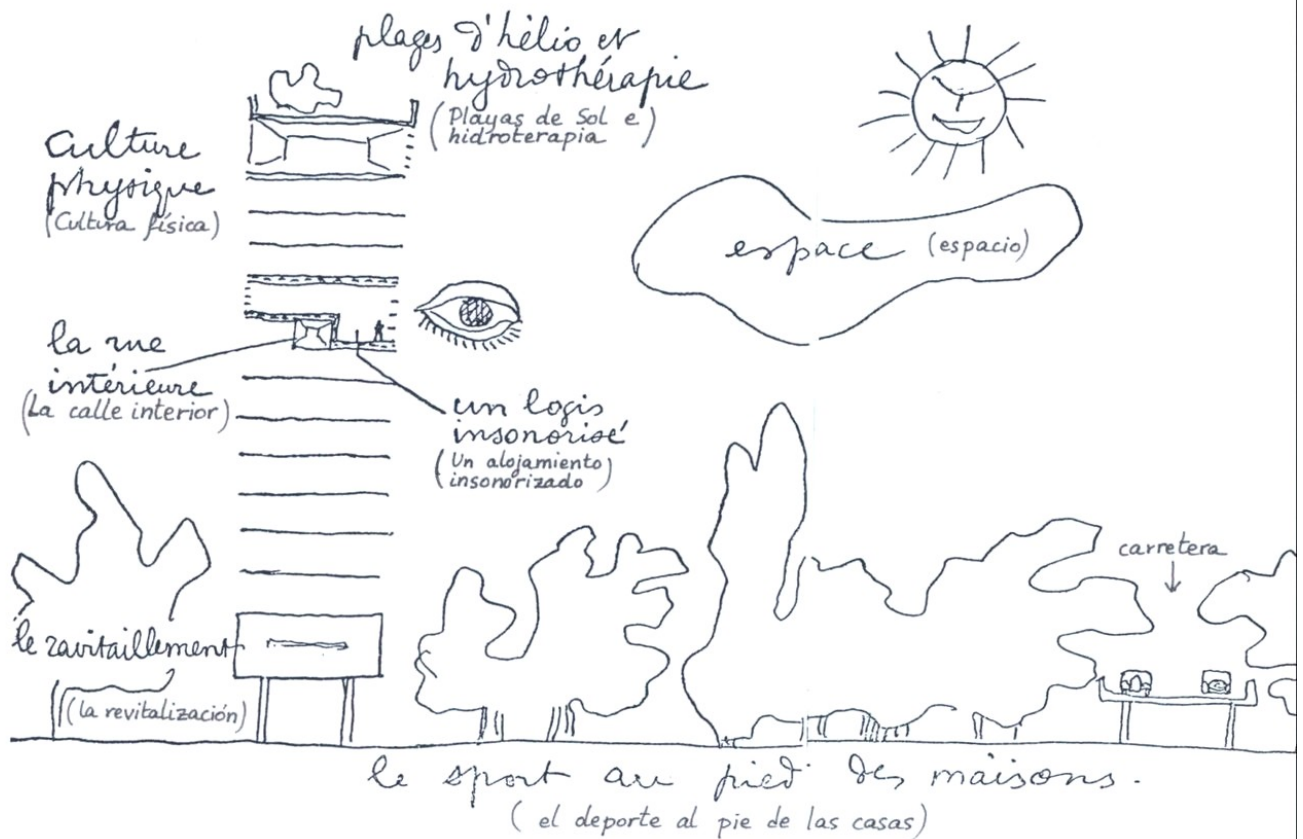 plages d'hélio et
hydrothérapie
(Playas de Sol e
hidroterapia)
Culture
physique
(Cultura física)
espace (espacio)
la rue
intérieure
(La calle interior)
un logis
insonorisé
(Un alojamiento
insonorizado)
carretera
le ravitaillement
(la revitalización)
le sport au pied des maisons.
(el deporte al pie de las casas)